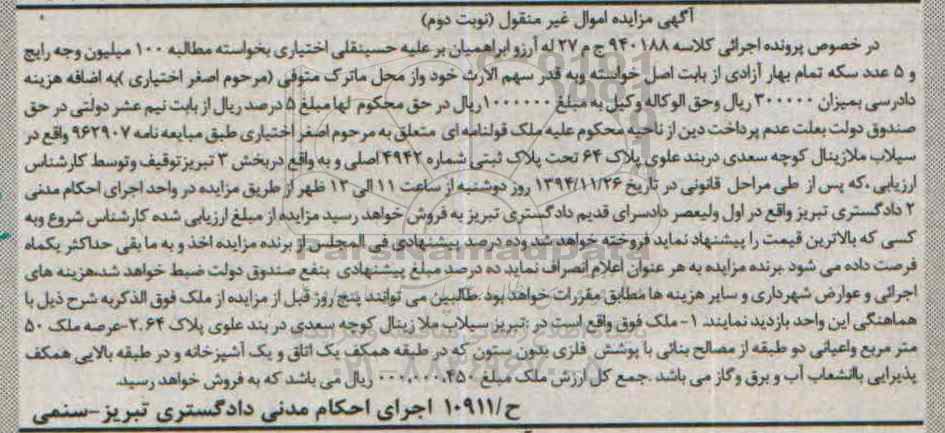 آگهی مزایده اموال غیر منقول (نوبت دوم)
در خصوص پرونده اجرائی کلاسه ۹۴۰۱۸۸ ج م ۲۷ له آرزو ابراهمیان بر علیه حسینقلی اختیاری بخواسته مطالبه ۱۰۰ میلیون وجه رایج
و ۵ عدد سکه تمام بهار آزادی از بابت اصل خواسته وبه قدر سهم الارث خود واز محل ماترک متوفی (مرحوم اصغر اختیاری )به اضافه هزینه
دادرسی بمیزان ۳۰۰۰۰۰ ریال وحق الوکاله وکیل به مبلغ ۱۰۰۰۰۰۰ ریال در حق محکوم لها مبلغ ۵ درصد ریال از بابت نیم عشر دولتی در حق
صندوق دولت بعلت عدم پرداخت دین از ناحیه محکوم علیه ملک قولنامه ای متعلق به مرحوم اصغر اختیاری طبق مبایعه نامه ۹۶۲۹۰۷ واقع در
سیلاب ملازینال کوچه سعدی دربند علوی پلاک ۶۴ تحت پلاک ثبتی شماره ۴۹۴۲ اصلی و به واقع دربخش ۳ تبریز توقیف وتوسط کارشناس
ارزیابی ،که پس از طی مراحل قانونی در تاریخ ۱۳۹۴/۱۱/۲۶ روز دوشنبه از ساعت ۱۱ الی ۱۲ ظهر از طریق مزایده در واحد اجرای احکام مدنی
۲ دادگستری تبریز واقع در اول ولیعصر دادسرای قدیم دادگستری تبریز به فروش خواهد رسید مزایده از مبلغ ارزیابی شده کارشناس شروع وبه
کسی که بالاترین قیمت را پیشنهاد نماید فروخته خواهد شد وده درصد پیشنهادی فی المجلس از برنده مزایده اخذ و به ما بقی حداکثر یکماه
فرصت داده می شود .برنده مزایده به هر عنوان اعلام انصراف نماید ده درصد مبلغ پیشنهادی بنفع صندوق دولت ضبط خواهد شد.هزینه های
اجرائی و عوارض شهرداری و سایر هزینه ها مطابق مقررات خواهد بود .طالبین می توانند پنج روز قبل از مزایده از ملک فوق الذکر به شرح ذیل با
هماهنگی این واحد بازدید نمایند. ۱- ملک فوق واقع است در :تبریز سیلاب ملا زینال کوچه سعدی در بند علوی پلاک ۲.۶۴-عرصه ملک ۵۰
متر مربع واعیانی دو طبقه از مصالح بنائی با پوشش فلزی بدون ستون که در طبقه همکف یک اتاق و یک آشپزخانه و در طبقه بالایی همکف
پذیرایی باانشعاب آب و برق وگاز می باشد .جمع کل ارزش ملک مبلغ ۰۰۰،۰۰۰،۴۵۰ ریال می باشد که به فروش خواهد رسید.
ح/۱۰۹۱۱ اجرای احکام مدنی دادگستری تبریز-سنمی
ParsNamadData